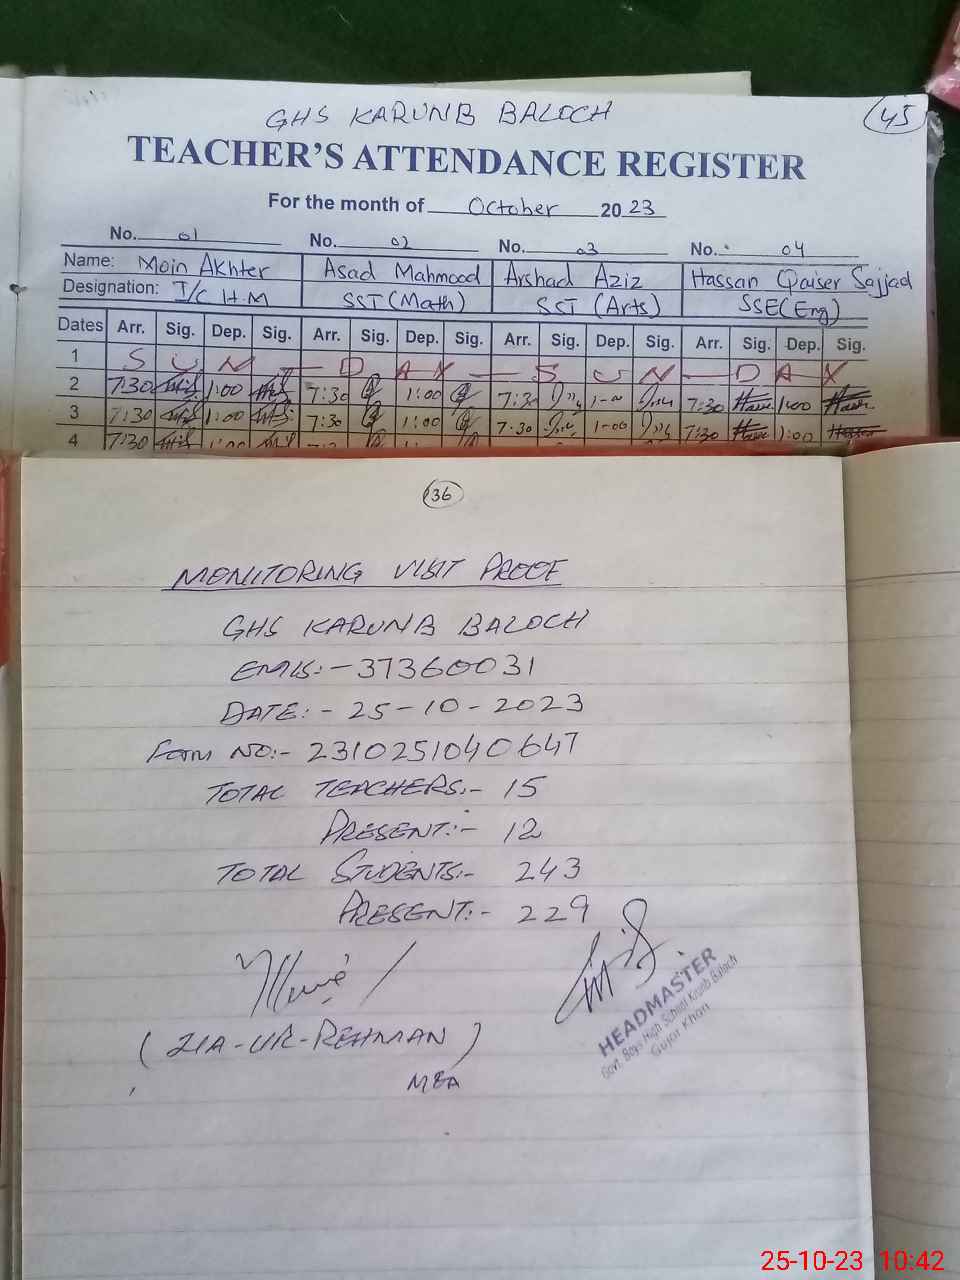 GHS KARUNB BALOCH
45
TEACHER'S ATTENDANCE REGISTER
For the month of October 2023
No. 01 No. 02 No. 03 No. 04
Name: Moin Akhter Asad Mahmood Arshad Aziz Hassan Qaiser Sajjad
Designation: I/C H.M SST (Math) SST (Arts) SSE (Eng)
Dates Arr. Sig. Dep. Sig. Arr. Sig. Dep. Sig. Arr. Sig. Dep. Sig. Arr. Sig. Dep. Sig.
1 S U N — D A Y — S U N — D A Y
2 7:30 1:00 7:30 1:00 7:30 1-00 7:30 1:00
3 7:30 1:00 7:30 1:00 7:30 1-00 7:30 1:00
4 7:30
36
MONITORING VISIT PROOF
GHS KARUNB BALOCH
EMIS:- 37360031
DATE:- 25-10-2023
Form NO:- 2310251040647
TOTAL TEACHERS:- 15
PRESENT:- 12
TOTAL STUDENTS:- 243
PRESENT:- 229
(ZIA-UR-REHMAN)
MEA
HEADMASTER
Govt. Boys High School Krunb Baloch
Gujar Khan
25-10-23 10:42